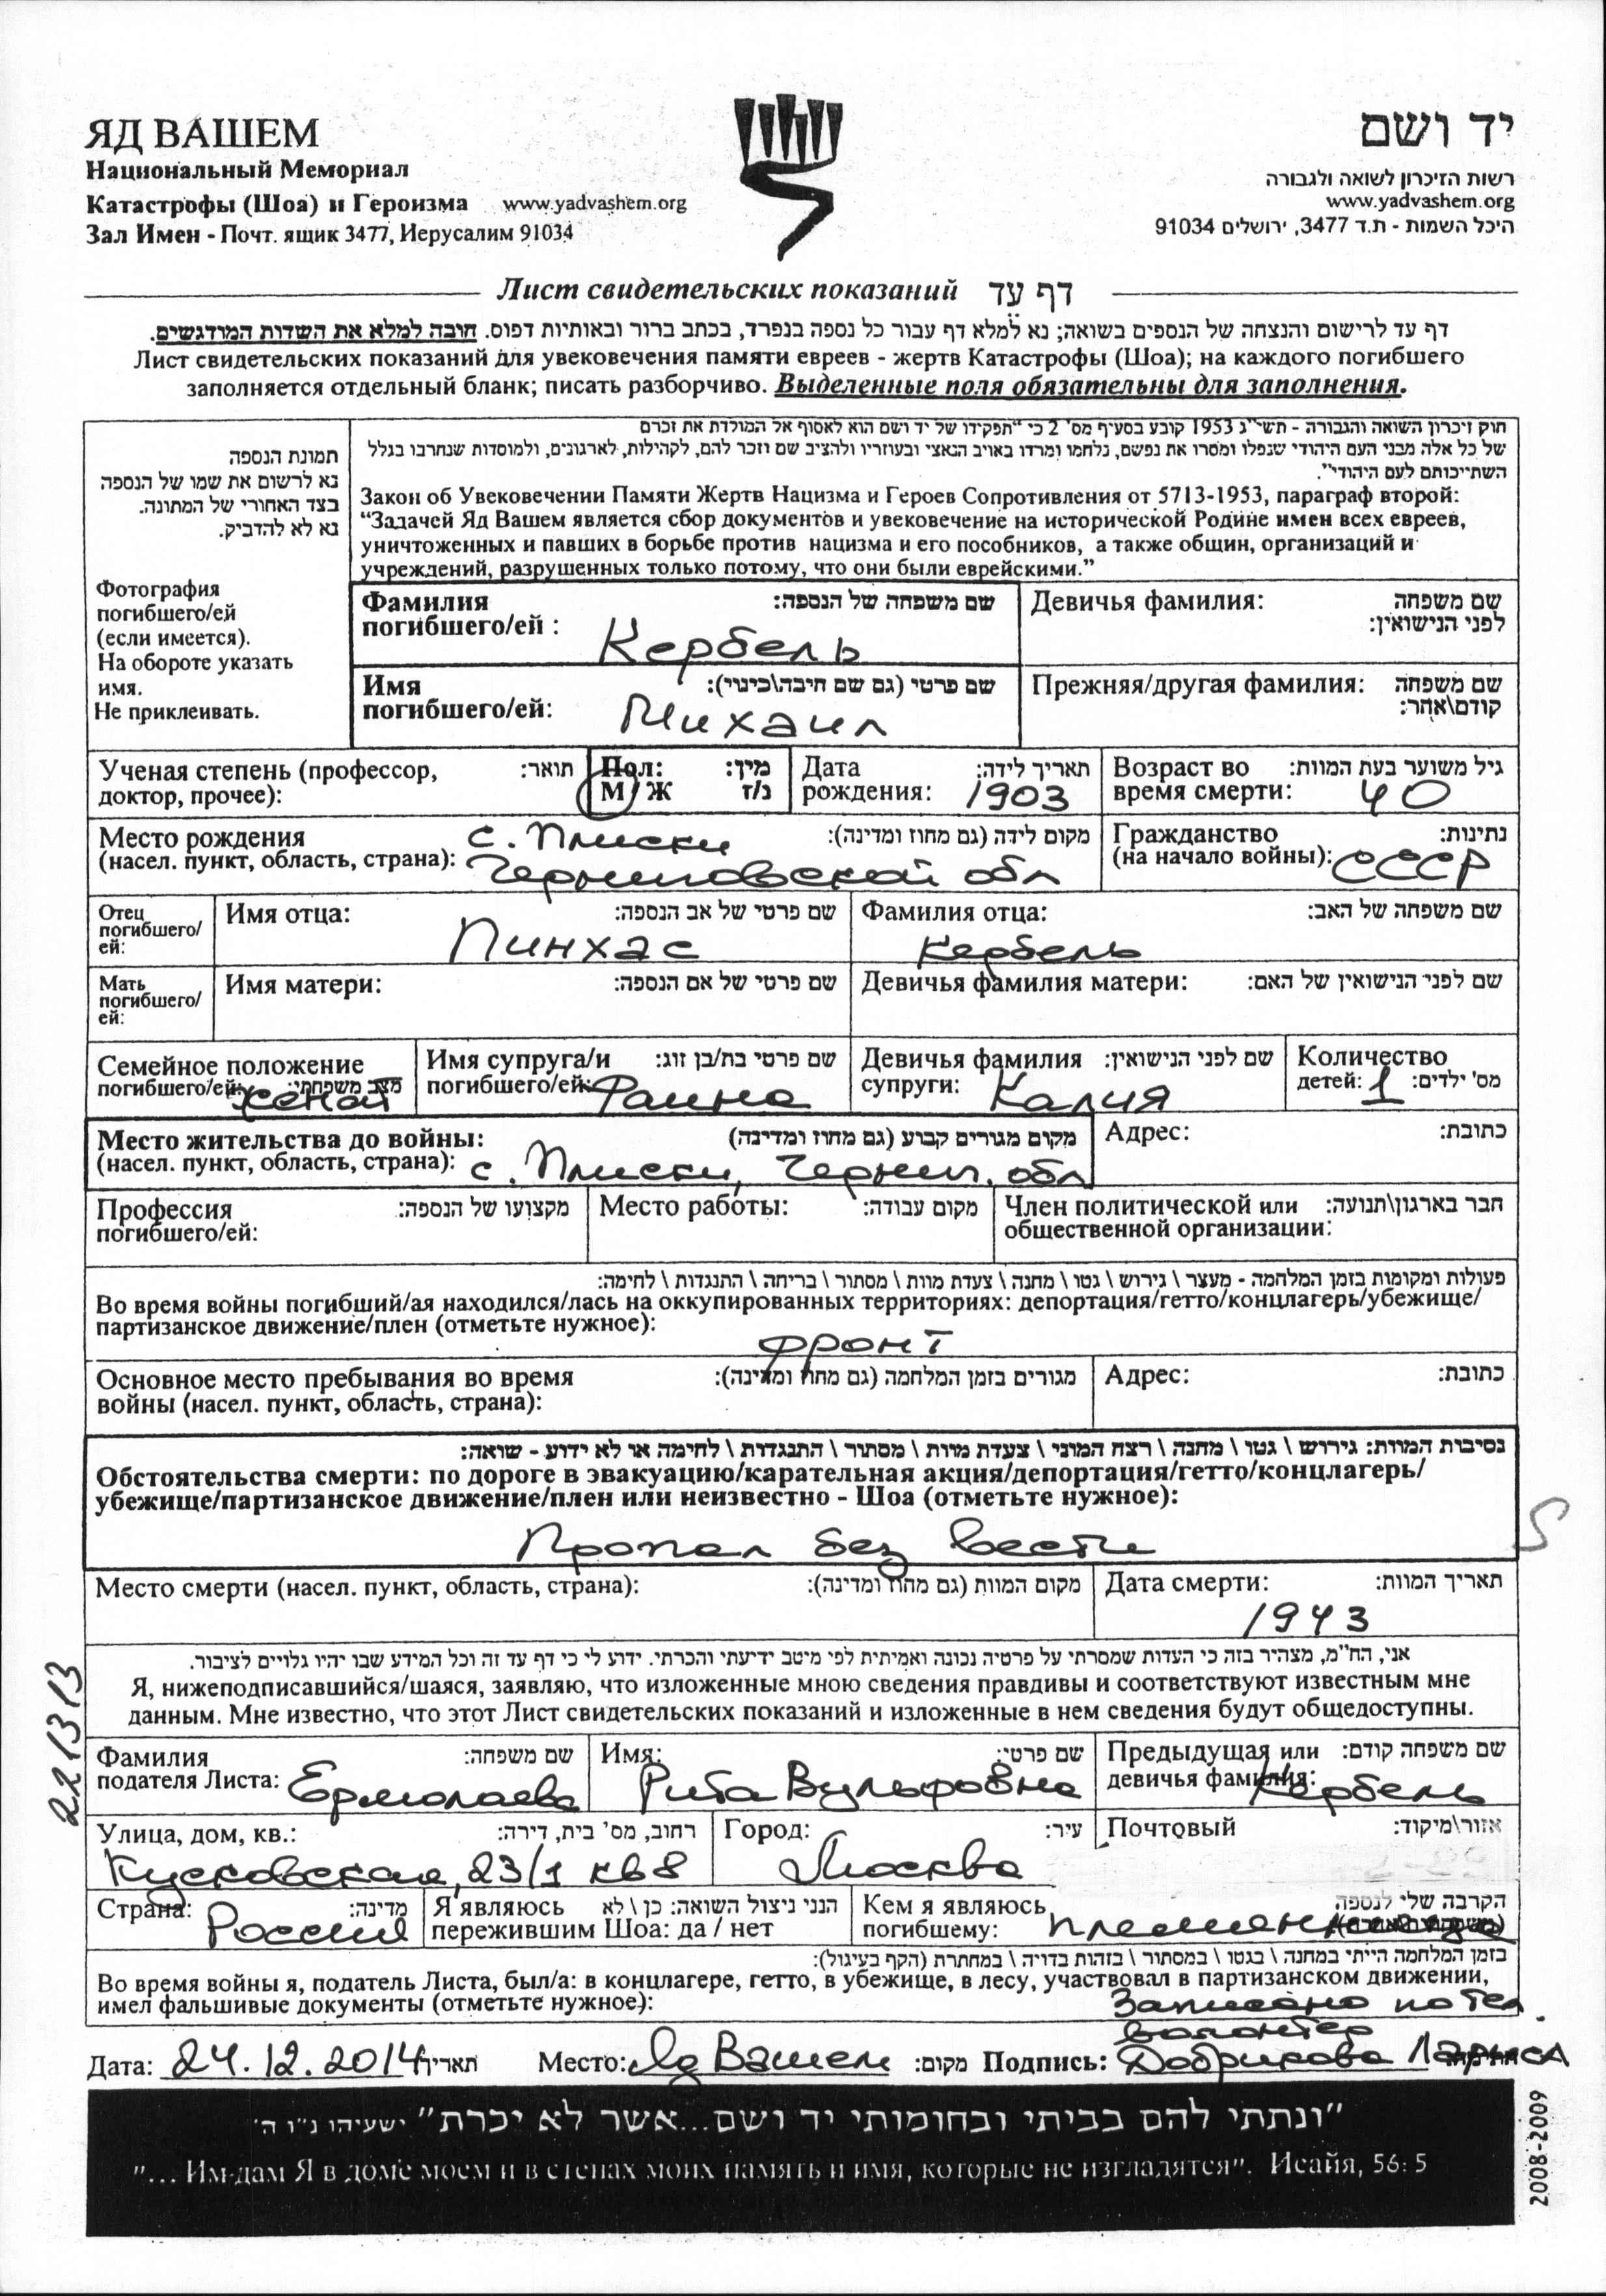 ЯД ВАШЕМ
Национальный Мемориал
Катастрофы (Шоа) и Героизма www.yadvashem.org
Зал Имен - Почт. ящик 3477, Иерусалим 91034
יד ושם
רשות הזיכרון לשואה ולגבורה
www.yadvashem.org
היכל השמות - ת.ד 3477, ירושלים 91034
Лист свидетельских показаний דף עד
דף עד לרישום והנצחה של הנספים בשואה; נא למלא דף עבור כל נספה בנפרד, בכתב ברור ובאותיות דפוס. חובה למלא את השדות המודגשים.
Лист свидетельских показаний для увековечения памяти евреев - жертв Катастрофы (Шоа); на каждого погибшего
заполняется отдельный бланк; писать разборчиво. Выделенные поля обязательны для заполнения.
תמונת הנספה
נא לרשום את שמו של הנספה
בצד האחורי של המתונה.
נא לא להדביק.
Фотография
погибшего/ей
(если имеется).
На обороте указать
имя.
Не приклеивать.
חוק זיכרון השואה והגבורה - תשי"ג 1953 קובע בסעיף מס' 2 כי "תפקידו של יד ושם הוא לאסוף אל המולדת את זכרם
של כל אלה מבני העם היהודי שנפלו ומסרו את נפשם, נלחמו ומרדו באויב הנאצי ובעוזריו ולהציב שם וזכר להם, לקהילות, לארגונים, ולמוסדות שנחרבו בגלל
השתייכותם לעם היהודי".
Закон об Увековечении Памяти Жертв Нацизма и Героев Сопротивления от 5713-1953, параграф второй:
“Задачей Яд Вашем является сбор документов и увековечение на исторической Родине имен всех евреев,
уничтоженных и павших в борьбе против нацизма и его пособников, а также общин, организаций и
учреждений, разрушенных только потому, что они были еврейскими.”
Фамилия שם משפחה של הנספה:
погибшего/ей : Кербель
Девичья фамилия: שם משפחה
לפני הנישואין:
Имя שם פרטי (גם שם חיבה\כינוי):
погибшего/ей: Михаил
Прежняя/другая фамилия: שם משפחה
קודם\אחר:
Ученая степень (профессор, תואר:
доктор, прочее):
Пол: מין:
М/Ж נ/ז
Дата תאריך לידה:
рождения: 1903
Возраст во גיל משוער בעת המוות:
время смерти: 40
Место рождения с. Плиски מקום לידה (גם מחוז ומדינה):
(насел. пункт, область, страна): Черниговской обл
Гражданство נתינות:
(на начало войны): СССР
Отец
погибшего/
ей:
Имя отца: שם פרטי של אב הנספה:
Пинхас
Фамилия отца: שם משפחה של האב:
Кербель
Мать
погибшего/
ей:
Имя матери: שם פרטי של אם הנספה:
Девичья фамилия матери: שם לפני הנישואין של האם:
Семейное положение
погибшего/ей: מצב משפחתי:
женат
Имя супруга/и שם פרטי בת/בן זוג:
погибшего/ей: Фаина
Девичья фамилия שם לפני הנישואין:
супруги: Калия
Количество
детей: 1 מס' ילדים:
Место жительства до войны: מקום מגורים קבוע (גם מחוז ומדינה)
(насел. пункт, область, страна): с. Плиски, Черниг. обл
Адрес: כתובת:
Профессия מקצועו של הנספה:
погибшего/ей:
Место работы: מקום עבודה:
Член политической или חבר בארגון\תנועה:
общественной организации:
פעולות ומקומות בזמן המלחמה - מעצר \ גירוש \ גטו \ מחנה \ צעדת מוות \ מסתור \ בריחה \ התנגדות \ לחימה:
Во время войны погибший/ая находился/лась на оккупированных территориях: депортация/гетто/концлагерь/убежище/
партизанское движение/плен (отметьте нужное):
фронт
Основное место пребывания во время מגורים בזמן המלחמה (גם מחוז ומדינה):
войны (насел. пункт, область, страна):
Адрес: כתובת:
נסיבות המוות: גירוש \ גטו \ מחנה \ רצח המוני \ צעדת מוות \ מסתור \ התנגדות \ לחימה או לא ידוע - שואה:
Обстоятельства смерти: по дороге в эвакуацию/карательная акция/депортация/гетто/концлагерь/
убежище/партизанское движение/плен или неизвестно - Шоа (отметьте нужное):
Пропал без вести
S
Место смерти (насел. пункт, область, страна): מקום המוות (גם מחוז ומדינה):
Дата смерти: תאריך המוות:
1943
אני, הח"מ, מצהיר בזה כי העדות שמסרתי על פרטיה נכונה ואמיתית לפי מיטב ידיעתי והכרתי. ידוע לי כי דף עד זה וכל המידע שבו יהיו גלויים לציבור.
Я, нижеподписавшийся/шаяся, заявляю, что изложенные мною сведения правдивы и соответствуют известным мне
данным. Мне известно, что этот Лист свидетельских показаний и изложенные в нем сведения будут общедоступны.
221313
Фамилия שם משפחה:
подателя Листа: Ермолаева
Имя: שם פרטי:
Рита Вульфовна
Предыдущая или שם משפחה קודם:
девичья фамилия: Кербель
Улица, дом, кв.: רחוב, מס' בית, דירה:
Кусковская, 23/1 кв 8
Город: עיר:
Москва
Почтовый אזור\מיקוד:
Страна: מדינה:
Россия
Я являюсь הנני ניצול השואה: כן \ לא
пережившим Шоа: да / нет
Кем я являюсь הקרבה שלי לנספה
погибшему: племянница
בזמן המלחמה הייתי במחנה \ בגטו \ במסתור \ בזהות בדויה \ במחתרת (הקף בעיגול):
Во время войны я, податель Листа, был/а: в концлагере, гетто, в убежище, в лесу, участвовал в партизанском движении,
имел фальшивые документы (отметьте нужное):
Записано по тел
волонтер
Дата: 24.12.2014 תאריך Место: Яд Вашем מקום: Подпись: Добрикова Лариса
"ונתתי להם בביתי ובחומותי יד ושם...אשר לא יכרת" ישעיהו נ"ו ה'
"... Им дам Я в доме моем и в стенах моих память и имя, которые не изгладятся". Исайя, 56: 5
2008-2009